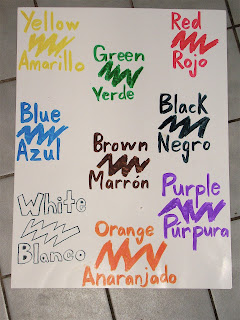 Yellow
Amarillo
Red
Rojo
Green
Verde
Blue
Azul
Black
Negro
Brown
Marrón
White
Blanco
Purple
Púrpura
Orange
Anaranjado